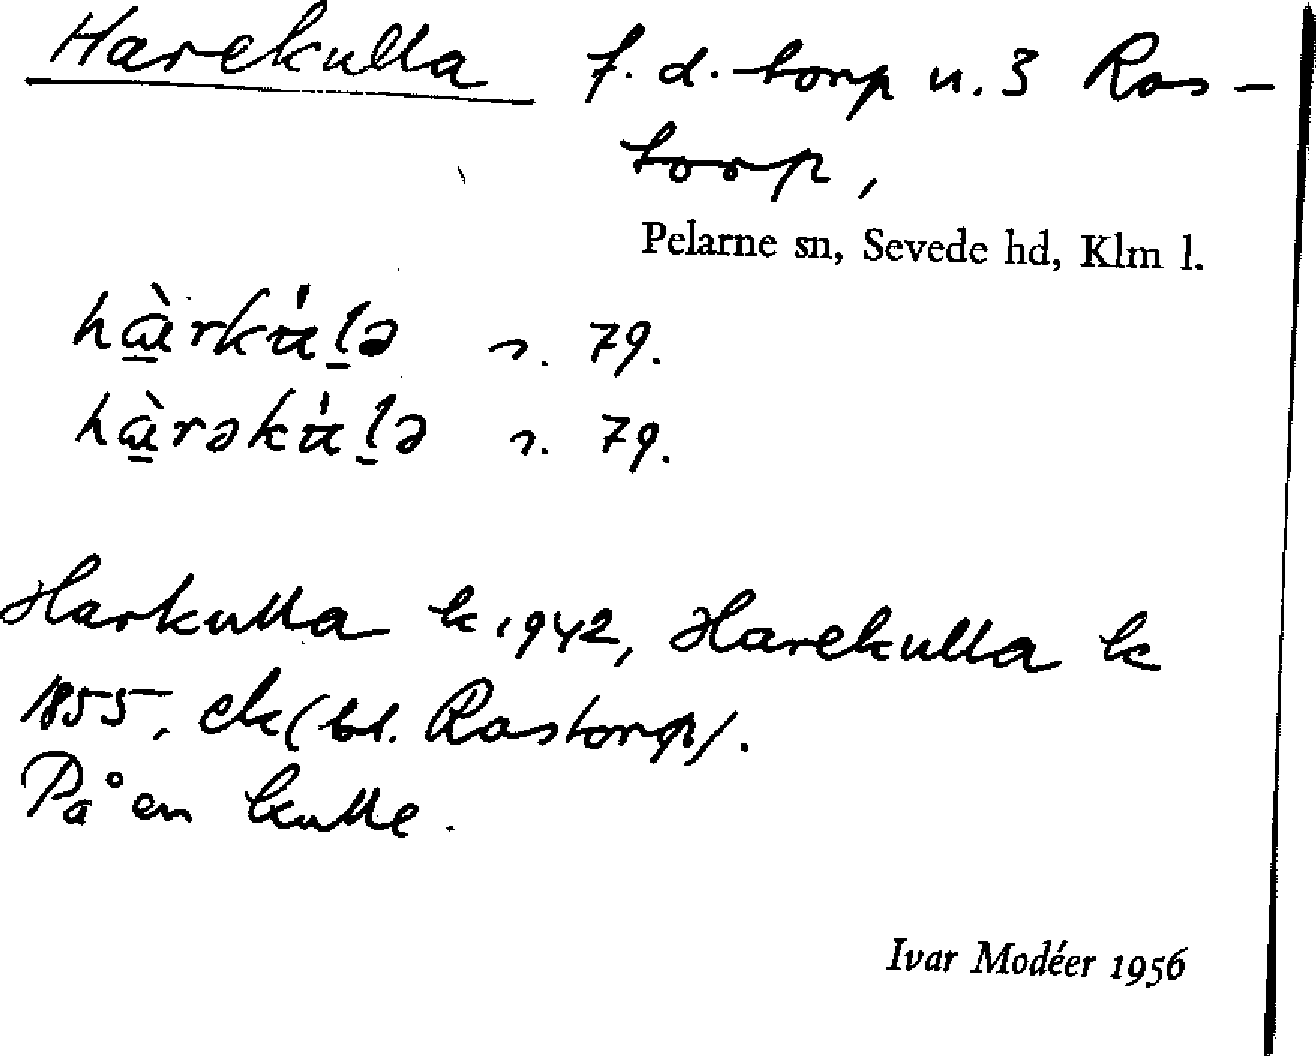 Harekulla f. d. torp u. 3 Ros-
torp,
Pelarne sn, Sevede hd, Klm l.
n. 79.
n. 79.
Harkulla k 1942, Harekulla k
1855, ek (bl. Rostorp).
På en kulle.
Ivar Modéer 1956